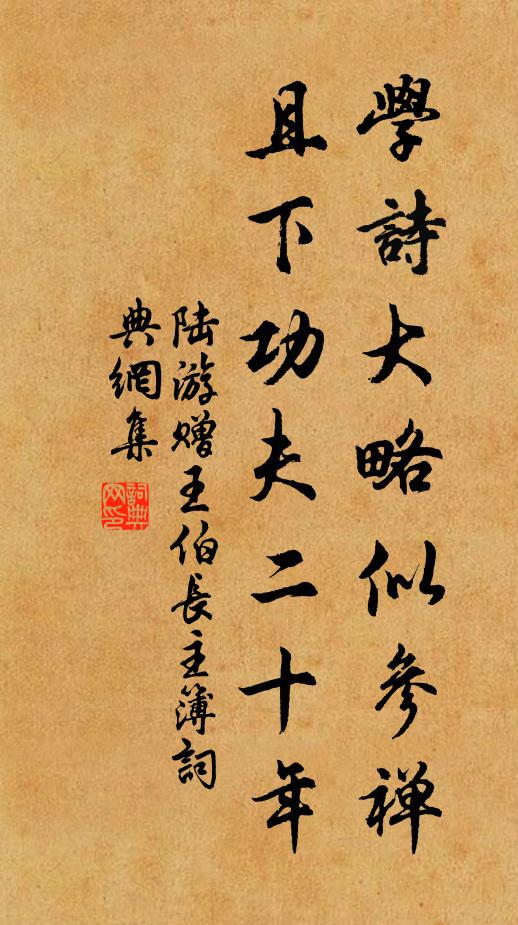 學詩大略似參禪
且下功夫二十年
陆游赠王伯長主簿詞
典網集
詞典網印